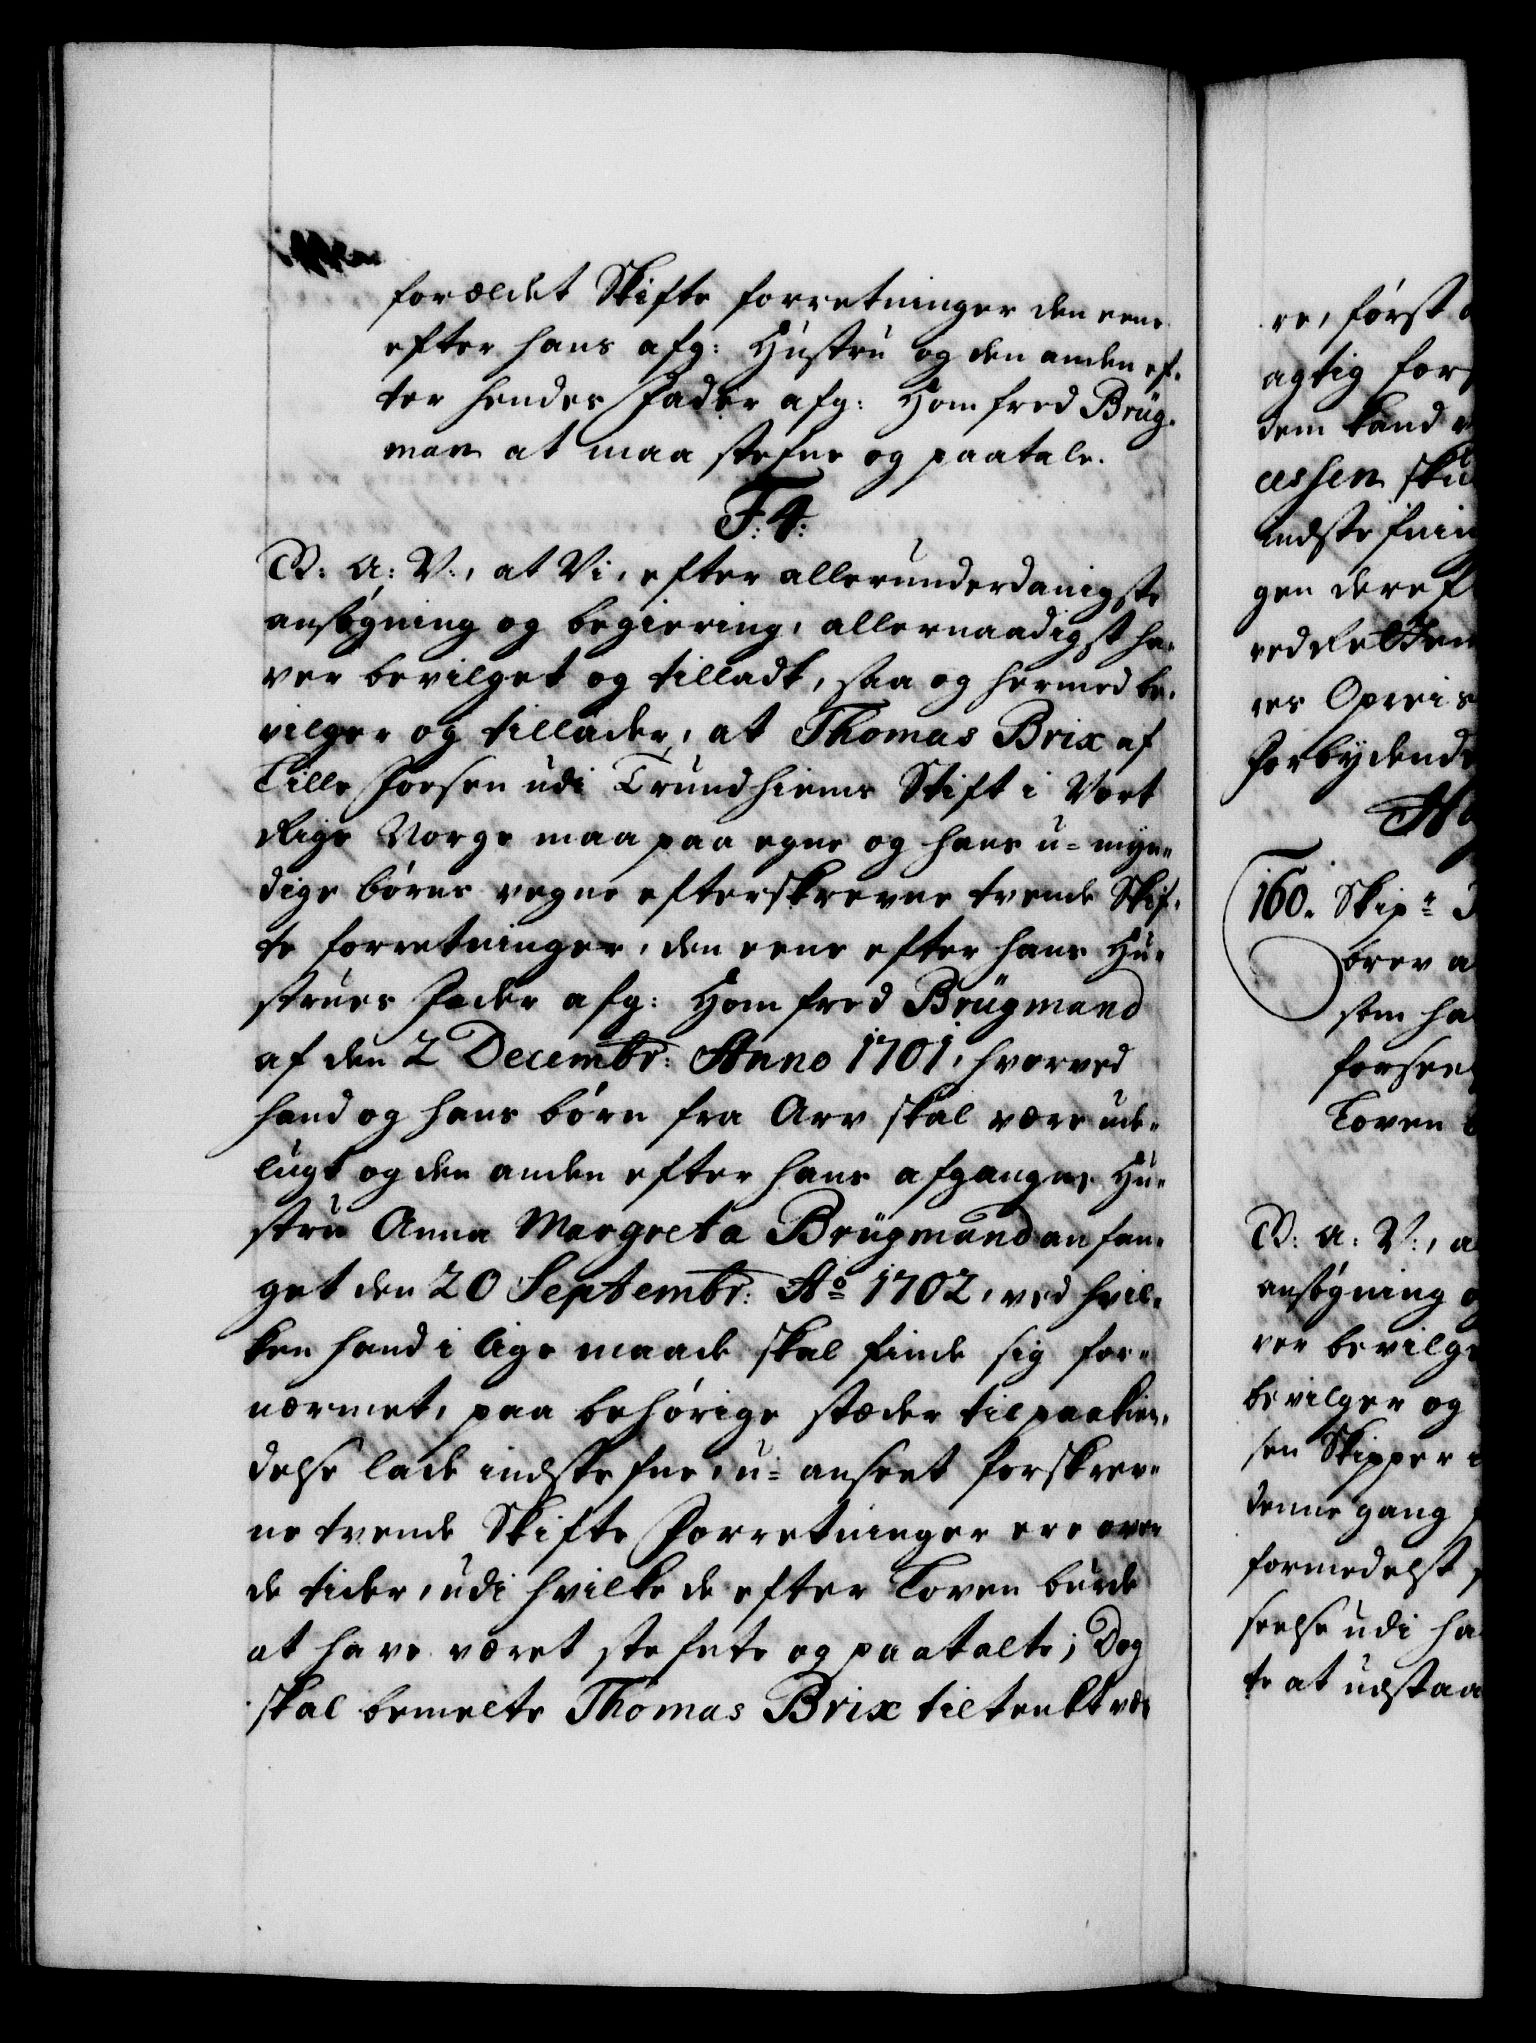 forældet Skifte forretninger den eene
efter hans afg: Hustru og den anden ef-
ter hendes Fader afg: Homfred Brüg-
man at maa stefne og paatale.
F: 4:
B: A: V:, at Vi, efter allerunderdanigste
ansøgning og begiering, allernaadigst ha-
ver bevilget og tilladt, saa og hermed be-
vilger og tillader, at Thomas Brix af
Lille Fosen udi Trundhiems Stift i Vort
Rige Norge maa paa egne og hans u-myn-
dige børns vegne efterskrevne tvende Skif-
te forretninger, den eene efter hans Hu-
strues Fader afg: Homfred Brügmand
af den 2 Decembr: Anno 1701, hvorved
hand og hans børn fra Arv skal være ude-
lugt og den anden efter hans afgangne Hu-
stru Anna Margreta Brügmand anfan-
get den 20 Septembr: Ao 1702, ved hvil-
ken hand i lige maade skal finde sig for-
nærmet, paa behørige stæder til paakien-
delse lade indstefne, u-anseet forskrev-
ne tvende Skifte Forretninger ere over
de tider, udi hvilke de efter Loven burde
at have været stefnte og paatalte; Dog
skal bemelte Thomas Brix tiltenkt væ-
re, først
agtig for
dem kand
cessen skul
indstefnin
gen deref
ved Retten
res Opreis
Forbydende
160. Skipr
brev a
som ha
forseel
Loven
B: A: V:, a
ansøgning o
ver bevilge
bevilger og
sen Skipper
denne gang
formedelst
seelse udi ha
te at udstaa